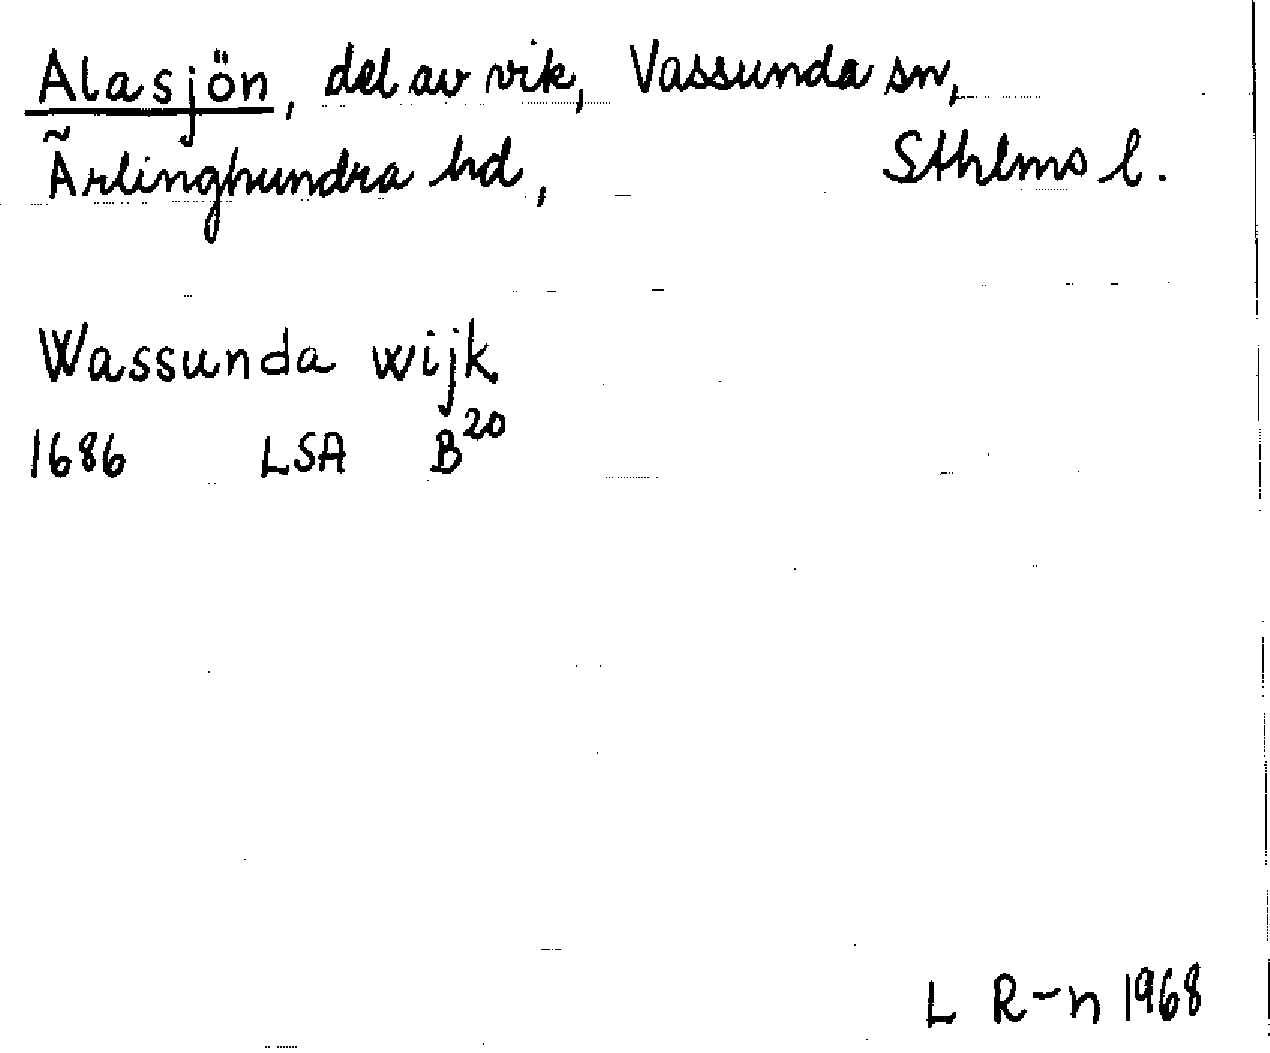 Alasjön, del av vik, Vassunda sn,
Ärlinghundra hd, Sthlms l.
Wassunda wijk
1686 LSA B20
L R-n 1968